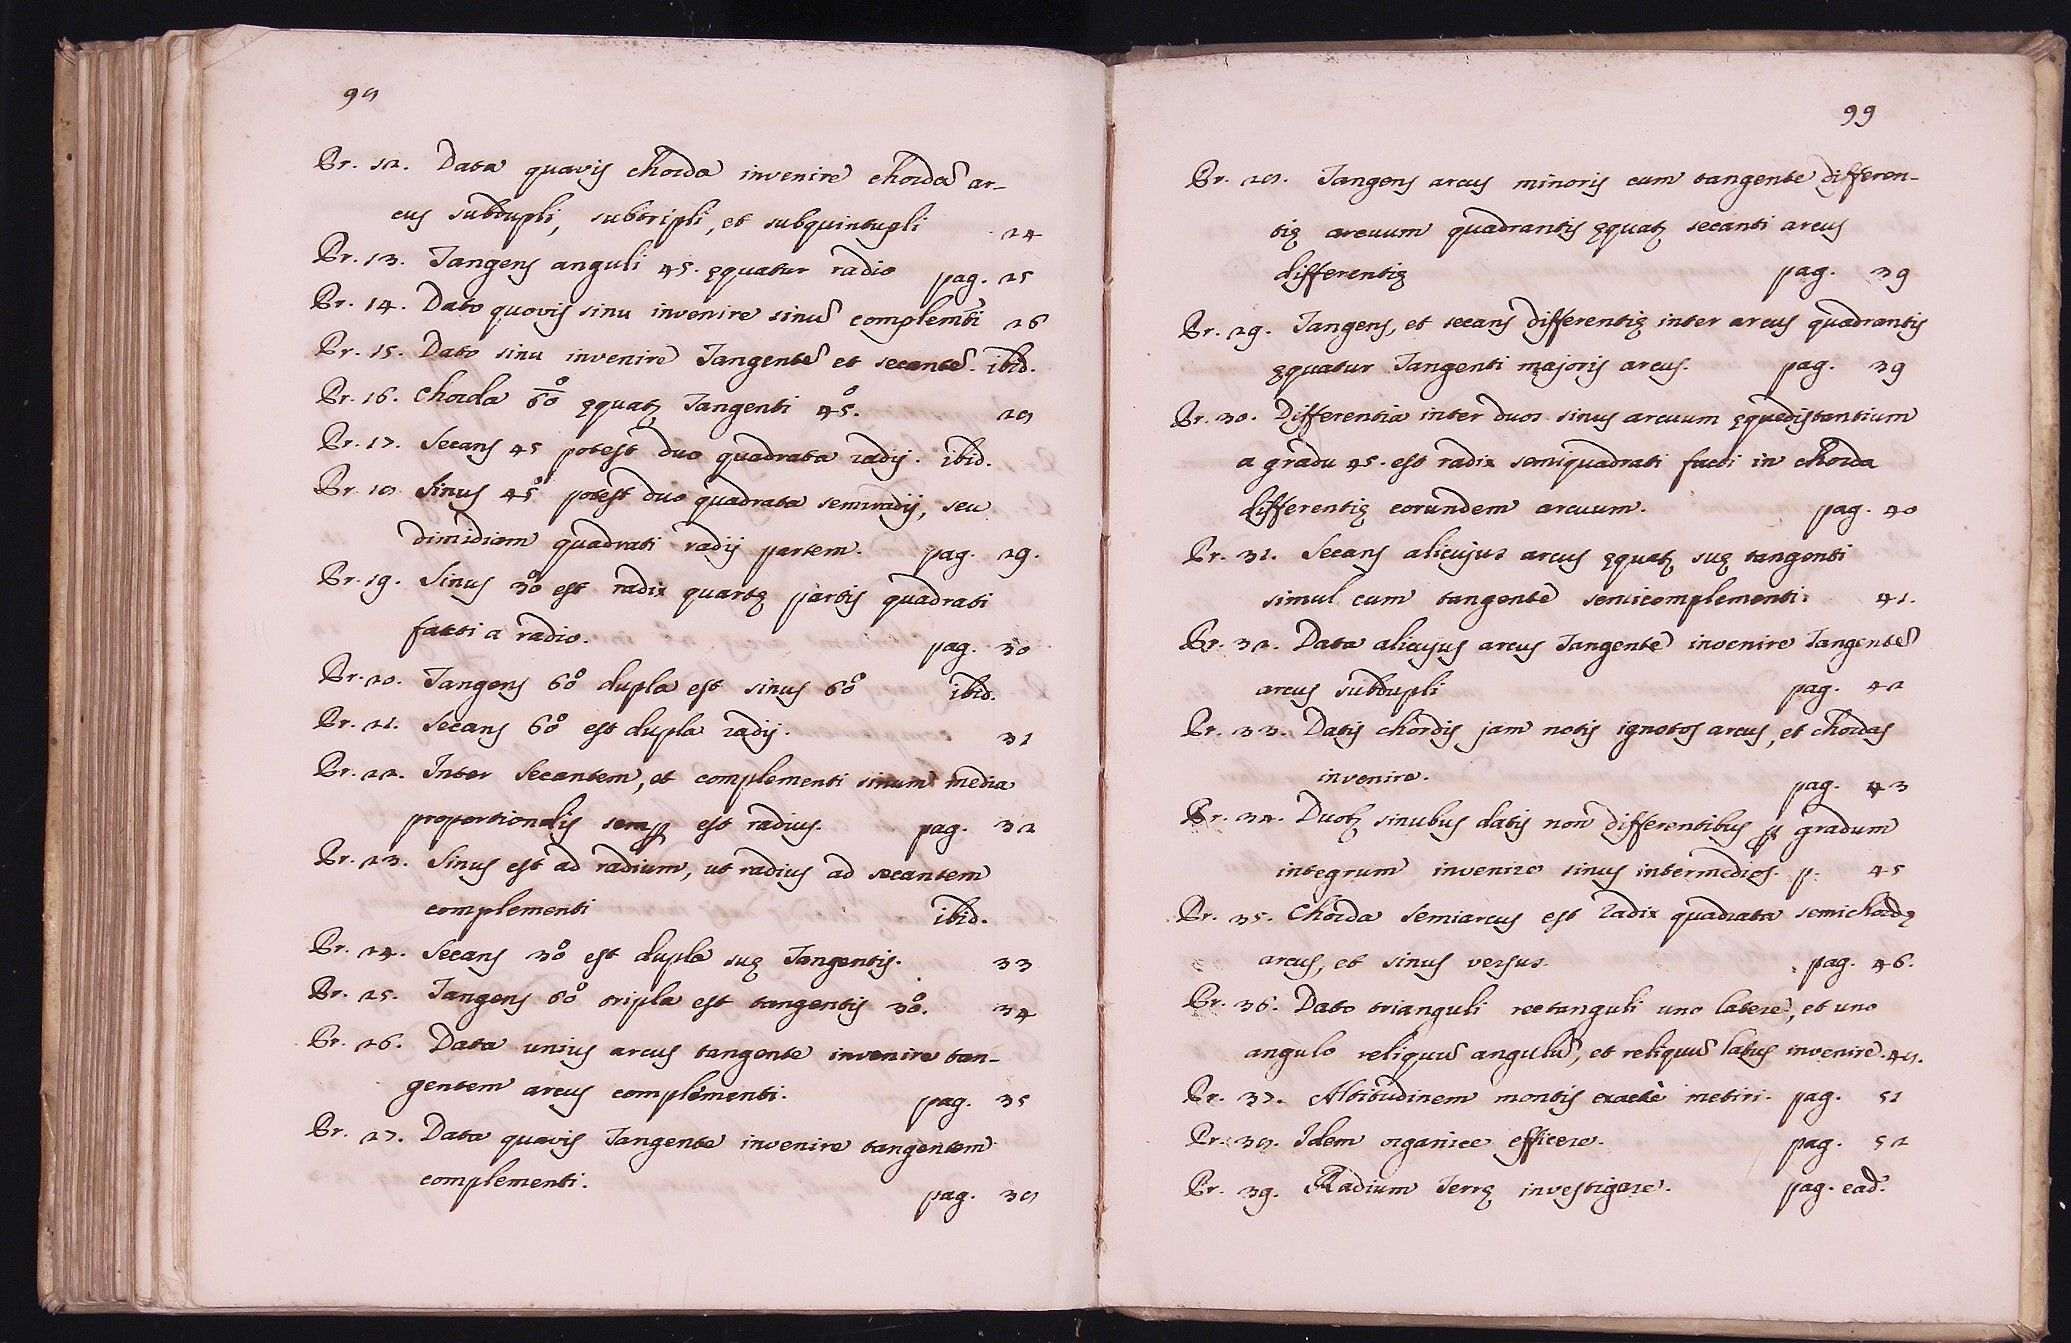 98
Pr. 12. Data quavis chorda invenire chordã ar-
cus subdupli, subtripli, et subquintupli 24
Pr. 13. Tangens anguli 45. ęquatur radio pag. 25
Pr. 14. Dato quovis sinu invenire sinũ complemti 26
Pr. 15. Dato sinu invenire Tangentẽ et secantẽ. ibid.
Pr. 16. Chorda 60° ęquatꝫ Tangenti 45°. 28
Pr. 17. Secans 45 potest duo quadrata radij. ibid.
Pr. 18 Sinus 45° potest duo quadrata semiradij, seu
dimidiam quadrati radij partem. pag. 29.
Pr. 19. Sinus 30° est radix quartę partis quadrati
facti a radio. pag. 30
Pr. 20. Tangens 60° dupla est sinus 60° ibid.
Pr. 21. Secans 60° est dupla radij. 31
Pr. 22. Inter Secantem, et complementi sinum media
proportionalis semꝑ est radius. pag. 32
Pr. 23. Sinus est ad radium, ut radius ad secantem
complementi ibid.
Pr. 24. Secans 30° est dupla suę Tangentis. 33
Pr. 25. Tangens 60° tripla est tangentis 30°. 34
Pr. 26. Data unius arcus tangente invenire tan-
gentem arcus complementi. pag. 35
Pr. 27. Data quavis Tangente invenire tangentem
complementi. pag. 38
99
Pr. 28. Tangens arcus minoris cum tangente differen-
tię arcuum quadrantis ęquatꝫ secanti arcus
differentię pag. 39
Pr. 29. Tangens, et secans differentię inter arcus quadrantis
ęquatur Tangenti majoris arcus. pag. 39
Pr. 30. Differentia inter duos sinus arcuum ęquedistantium
a gradu 45. est radix semiquadrati facti in chorda
differentię eorundem arcuum. pag. 40
Pr. 31. Secans alicujus arcus ęquatꝫ suę tangenti
simul cum tangente semicomplementi. 41.
Pr. 32. Data alicujus arcus Tangente invenire Tangentẽ
arcus subdupli pag. 42
Pr. 33. Datis chordis jam notis ignotos arcus, et chordas
invenire. pag. 43
Pr. 34. Duobꝫ sinubus datis non differentibus ꝑ gradum
integrum invenire sinus intermedios. p. 45
Pr. 35. Chorda semiarcus est radix quadrata semichordę
arcus, et sinus versus. pag. 46.
Pr. 36. Dato trianguli rectanguli uno latere, et uno
angulo reliquũ angulũ, et reliquũ latus invenire. 48.
Pr. 37. Altitudinem montis exactè metiri. pag. 51
Pr. 38. Idem organice efficere. pag. 52
Pr. 39. Radium Terrę investigare. pag. ead.